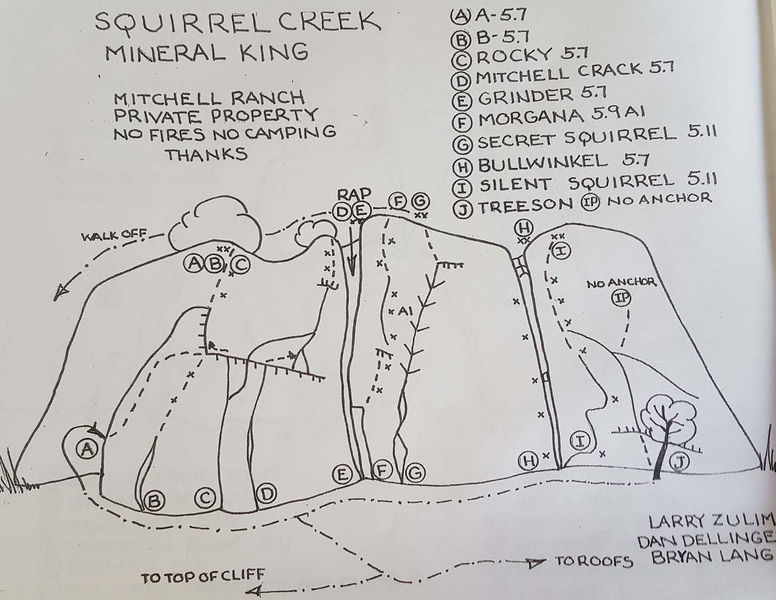 SQUIRREL CREEK
MINERAL KING
MITCHELL RANCH
PRIVATE PROPERTY
NO FIRES NO CAMPING
THANKS
(A) A-5.7
(B) B-5.7
(C) ROCKY 5.7
(D) MITCHELL CRACK 5.7
(E) GRINDER 5.7
(F) MORGANA 5.9 A1
(G) SECRET SQUIRREL 5.11
(H) BULLWINKEL 5.7
(I) SILENT SQUIRREL 5.11
(J) TREESON (IP) NO ANCHOR
RAP
D E F G
WALK OFF
H
A B C
I
NO ANCHOR
IP
A1
A
I
B C D E F G H J
LARRY ZULIM
DAN DELLINGE
TO ROOFS BRYAN LANG
TO TOP OF CLIFF